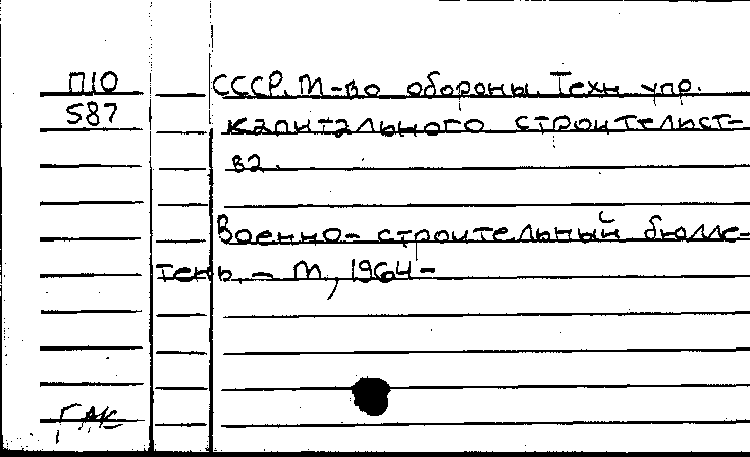 П10
587
СССР. М-во обороны. Техн. упр.
капитального строительст-
ва.
Военно-строительный бюлле-
тень. – М., 1964 –
ГАК